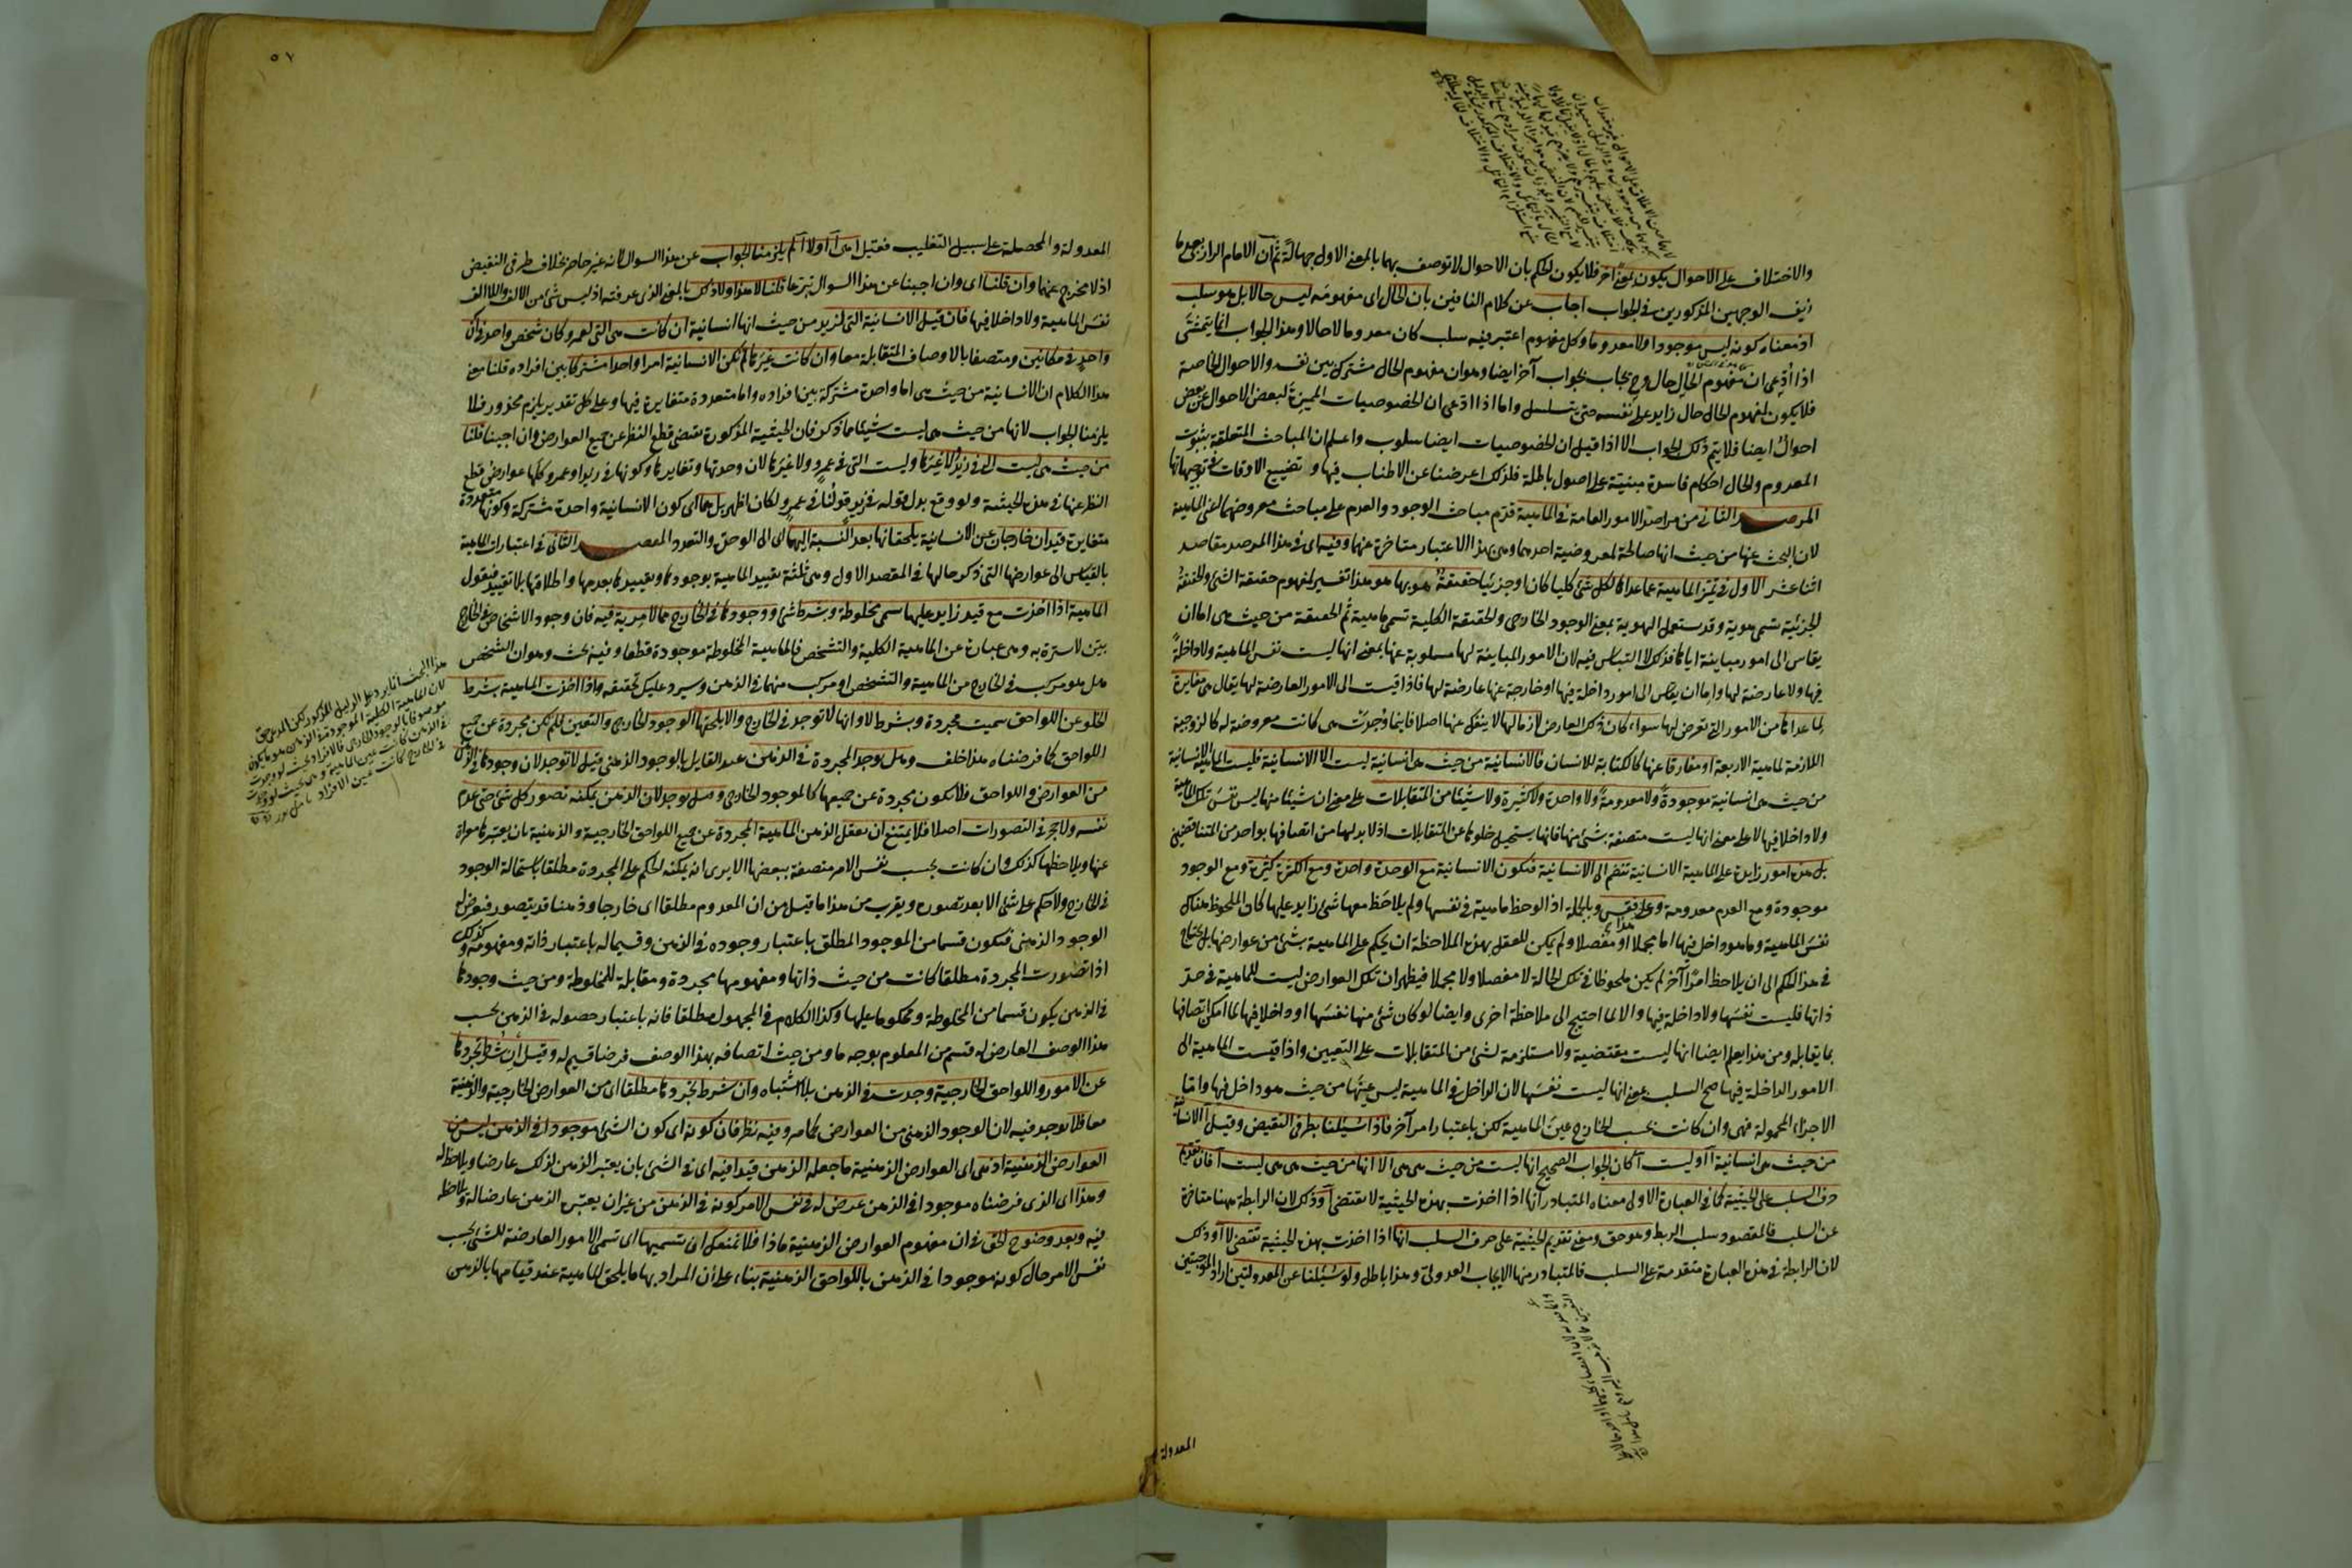 والاختلاف على الاحوال يكون بمعنى آخر فلا يكون الحكم بان الاحوال لا توصف بهما بالمعنى الاول جهالة ثم ان الامام الرازى بعد ما
زيف الوجهين المذكورين فى الجواب اجاب عن كلام النافين بان الحال اى مفهومه ليس حالا بل هو سلب
اذ معناه كونه ليس موجودا ولا معدوما وكل مفهوم اعتبر فيه سلب كان معدوما لا حالا وهذا الجواب انما يتمشى
اذا ادعى ان مفهوم الحال حال وح يجاب بجواب آخر ايضا وهو ان مفهوم الحال مشترك بين نفسه والاحوال الخاصة
فلا يكون لمفهوم الحال حال زايد على نفسه حتى يتسلسل واما اذا ادعى ان الخصوصيات المميزة لبعض الاحوال عن بعض
احوال ايضا فلا يتم ذلك الجواب الا اذا قيل ان الخصوصيات ايضا سلوب واعلم ان المباحث المتعلقة بثبوت
المعدوم والحال احكام فاسدة مبنية على اصول باطلة فلذلك اعرضنا عن الاطناب فيها وتضييع الاوقات فى توجيهاتها
المرصد الثانى من مراصد الامور العامة فى الماهية قدم مباحث الوجود والعدم على مباحث معروضهما اعنى الماهية
لان البحث عنها من حيث انها صالحة لمعروضية احدهما وهى بهذا الاعتبار متاخرة عنهما وفيه اى فى هذا المرصد مقاصد
اثنا عشر الاول فى تميز الماهية عما عداها لكل شئ كليا كان او جزئيا حقيقة هو بها هو هذا تفسير لمفهوم حقيقة الشئ والحقيقة
الجزئية تسمى هوية وقد يستعمل الهوية بمعنى الوجود الخارجى والحقيقة الكلية تسمى ماهية ثم الحقيقة من حيث هى اما ان
يقاس الى امور مباينة اياها فذلك لا التباس فيه لان الامور المباينة لها مسلوبة عنها بمعنى انها ليست نفس الماهية ولا داخلة
فيها ولا عارضة لها واما ان يقاس الى امور داخلة فيها او خارجة عنها عارضة لها فاذا قيست الى الامور العارضة لها يقال هى مغايرة
لما عداها من الامور التى تعرض لها سواء كان ذلك العارض لازما لها لا ينفك عنها اصلا فاينما وجدت هى كانت معروضة له كالزوجية
اللازمة لماهية الاربعة او مفارقا عنها كالكتابة للانسان فالانسانية من حيث هى انسانية ليست الا الانسانية فليست الماهية الانسانية
من حيث هى انسانية موجودة ولا معدومة ولا واحدة ولا كثيرة ولا شيئا من المتقابلات على معنى ان شيئا منها ليس نفس تلك الماهية
ولا داخلا فيها لا على معنى انها ليست متصفة بشئ منها فانها يستحيل خلوها عن المتقابلات اذ لا بد لها من اتصافها بواحد من المتناقضين
بل هذه امور زايدة على الماهية الانسانية تنضم الى الانسانية فتكون الانسانية مع الوحدة واحدة ومع الكثرة كثيرة ومع الوجود
موجودة ومع العدم معدومة وعلى هذا فقس وبالجملة اذا لوحظ ماهية فى نفسها ولم يلاحظ معها شئ زايد عليها كان الملحوظ هناك
نفس الماهية وما هو داخل فيها اما مجملا او مفصلا ولم يمكن للعقل بهذه الملاحظة ان يحكم على الماهية بشئ من عوارضها بل يحتاج
فى هذا الحكم الى ان يلاحظ امرا آخر لم يكن ملحوظا فى تلك الحالة لا مفصلا ولا مجملا فيظهر ان تلك العوارض ليست للماهية فى حد
ذاتها فليست نفسها ولا داخلة فيها والا لما احتيج الى ملاحظة اخرى وايضا لو كان شئ منها نفسها او داخلا فيها لما امكن اتصافها
بما يقابله ومن هذا يعلم ايضا انها ليست مقتضية ولا مستلزمة لشئ من المتقابلات على التعيين واذا قيست الماهية الى
الامور الداخلة فيها صح السلب بمعنى انها ليست نفسها لان الداخل فى الماهية ليس عينها من حيث هو داخل فيها واما
الاجزاء المحمولة فهى وان كانت بحسب الخارج عين الماهية لكن باعتبار امر آخر فاذا سئلنا بطرفى النقيض وقيل الانسانية
من حيث هى انسانية آ او ليست آ كان الجواب الصحيح انها ليست من حيث هى هى آ لا انها من حيث هى هى ليست آ فان تقديم
حرف السلب على الحيثية كما فى العبارة الاولى معناه المتبادر انها اذا اخذت بهذه الحيثية لا تقتضى آ وذلك لان الرابطة ههنا متاخرة
عن السلب فالمقصود سلب الربط وهو حق ومعنى تقديم الحيثية على حرف السلب انها اذا اخذت بهذه الحيثية تقتضى لا آ وذلك
لان الرابطة فى هذه العبارة متقدمة على السلب فالمتبادر منها الايجاب العدولى وهذا باطل ولو سئلنا عن المعدولتين اراد الموجبتين
المعدولة
٥٧
المعدولة والمحصلة على سبيل التغليب فقيل اهى آ او لا آ لم يلزمنا الجواب عن هذا السوال لانه غير حاصر بخلاف طرفى النقيض
اذ لا مخرج عنهما وان قلنا اى وان اجبنا عن هذا السوال تبرعا قلنا لا هذا ولا ذاك بالمعنى الذى عرفته اذ ليس شئ من الالف واللاالف
نفس الماهية ولا داخلا فيها فان قيل الانسانية التى لزيد من حيث انها انسانية ان كانت هى التى لعمرو كان شخص واحد فى آن
واحد فى مكانين ومتصفا بالاوصاف المتقابلة معا وان كانت غيرها لم تكن الانسانية امرا واحدا مشتركا بين افراده قلنا معنى
هذا الكلام ان الانسانية من حيث هى اما واحدة مشتركة بين افراده واما متعددة متغايرة فيها وعلى كل تقدير يلزم محذور فلا
يلزمنا الجواب لانها من حيث هى ليست شيئا مما ذكر فان الحيثية المذكورة تقتضى قطع النظر عن جميع العوارض وان اجبنا قلنا
من حيث هى ليست التى فى زيد ولا غيرها وليست التى فى عمرو ولا غيرها لان وحدتها وتغايرها وكونها فى زيد او عمرو كلها عوارض قطع
النظر عنها فى هذه الحيثية ولو وقع بدل قوله فى زيد قولنا فى عمرو لكان اظهر بل هما اى كون الانسانية واحدة مشتركة وكونها متعددة
متغايرة قيدان خارجان عن الانسانية يلحقانها بعد النسبة اليهما اى الى الوحدة والتعدد المقصد الثانى فى اعتبارات الماهية
بالقياس الى عوارضها التى ذكر حالها فى المقصد الاول وهى ثلثة تقييد الماهية بوجودها وتقييدها بعدمها واطلاقها بلا تقييد فيقول
الماهية اذا اخذت مع قيد زايد عليها سمى مخلوطة وبشرط شئ ووجودها فى الخارج مما لا مرية فيه فان وجود الاشخاص فى الخارج
بين لا سترة به وهى عبارة عن الماهية الكلية والتشخص فالماهية المخلوطة موجودة قطعا وفيه بحث وهو ان الشخص
هل هو مركب فى الخارج من الماهية والتشخص او مركب منهما فى الذهن وسيرد عليك تحقيقه واذا اخذت الماهية بشرط
الخلو عن اللواحق سميت مجردة وبشرط لا وانها لا توجد فى الخارج والا يلحقها الوجود الخارجى والتعين فلم تكن مجردة عن جميع
اللواحق كما فرضناه هذا خلف وهل يوجد المجردة فى الذهن عند القايل بالوجود الذهنى قيل لا توجد لان وجودها فى الذهن
من العوارض واللواحق فلا تكون مجردة عن جميعها كالموجود الخارجى وقيل يوجد لان الذهن يمكنه تصور كل شئ حتى عدم
نفسه ولا حجر فى التصورات اصلا فلا يمتنع ان يعقل الذهن الماهية المجردة عن جميع اللواحق الخارجية والذهنية بان يعتبرها معراة
عنها ويلاحظها كذلك وان كانت بحسب نفس الامر متصفة ببعضها الا يرى انه يمكنه الحكم على المجردة مطلقا باستحالة الوجود
فى الخارج ولا حكم على شئ الا بعد تصوره ويقرب من هذا ما قيل من ان المعدوم مطلقا اى خارجا وذهنا قد يتصور فيعرض له
الوجود الذهنى فيكون قسما من الموجود المطلق باعتبار وجوده فى الذهن وقسيما له باعتبار ذاته ومفهومه وكذلك
اذا تصورت المجردة مطلقا كانت من حيث ذاتها ومفهومها مجردة ومقابلة للمخلوطة ومن حيث وجودها
فى الذهن يكون قسما من المخلوطة ومحكوما عليها وكذا الكلام فى المجهول مطلقا فانه باعتبار حصوله فى الذهن بحسب
هذا الوصف العارض له قسم من المعلوم بوجه ما ومن حيث اتصافه بهذا الوصف فرضا قسيم له وقيل ان شرط تجردها
عن الامور واللواحق الخارجية وجدت فى الذهن بلا اشتباه وان شرط تجردها مطلقا اى من العوارض الخارجية والذهنية
معا فلا توجد فيه لان الوجود الذهنى من العوارض كما مر وفيه نظر فان كونه اى كون الشئ موجودا فى الذهن ليس من
العوارض الذهنية اذ هى اى العوارض الذهنية ما جعله الذهن قيدا فيه اى فى الشئ بان يعتبر الذهن لذلك عارضا ويلاحظ له
وهذا اى الذى فرضناه موجودا فى الذهن عرض له فى نفس الامر كونه فى الذهن من غير ان يعتبره الذهن عارضا له ويلاحظه
فيه وبعد وضوح الحق فى ان مفهوم العوارض الذهنية ماذا فلا نمنعك ان تسميها اى تسمى الامور العارضة للشئ بحسب
نفس الامر حال كونه موجودا فى الذهن باللواحق الذهنية بناء على ان المراد بها ما يلحق الماهية عند قيامها بالذهن
هذا البحث انما يرد على الدليل المذكور لكن المدعى حق
لان الماهية الكلية الموجودة فى الذهن
موصوفا بالوجود الخارجى فالافراد بحيث لو وجدت
فى الذهن كانت عين الماهية وهى بحيث لو وجدت
فى الخارج كانت عين الافراد تامل